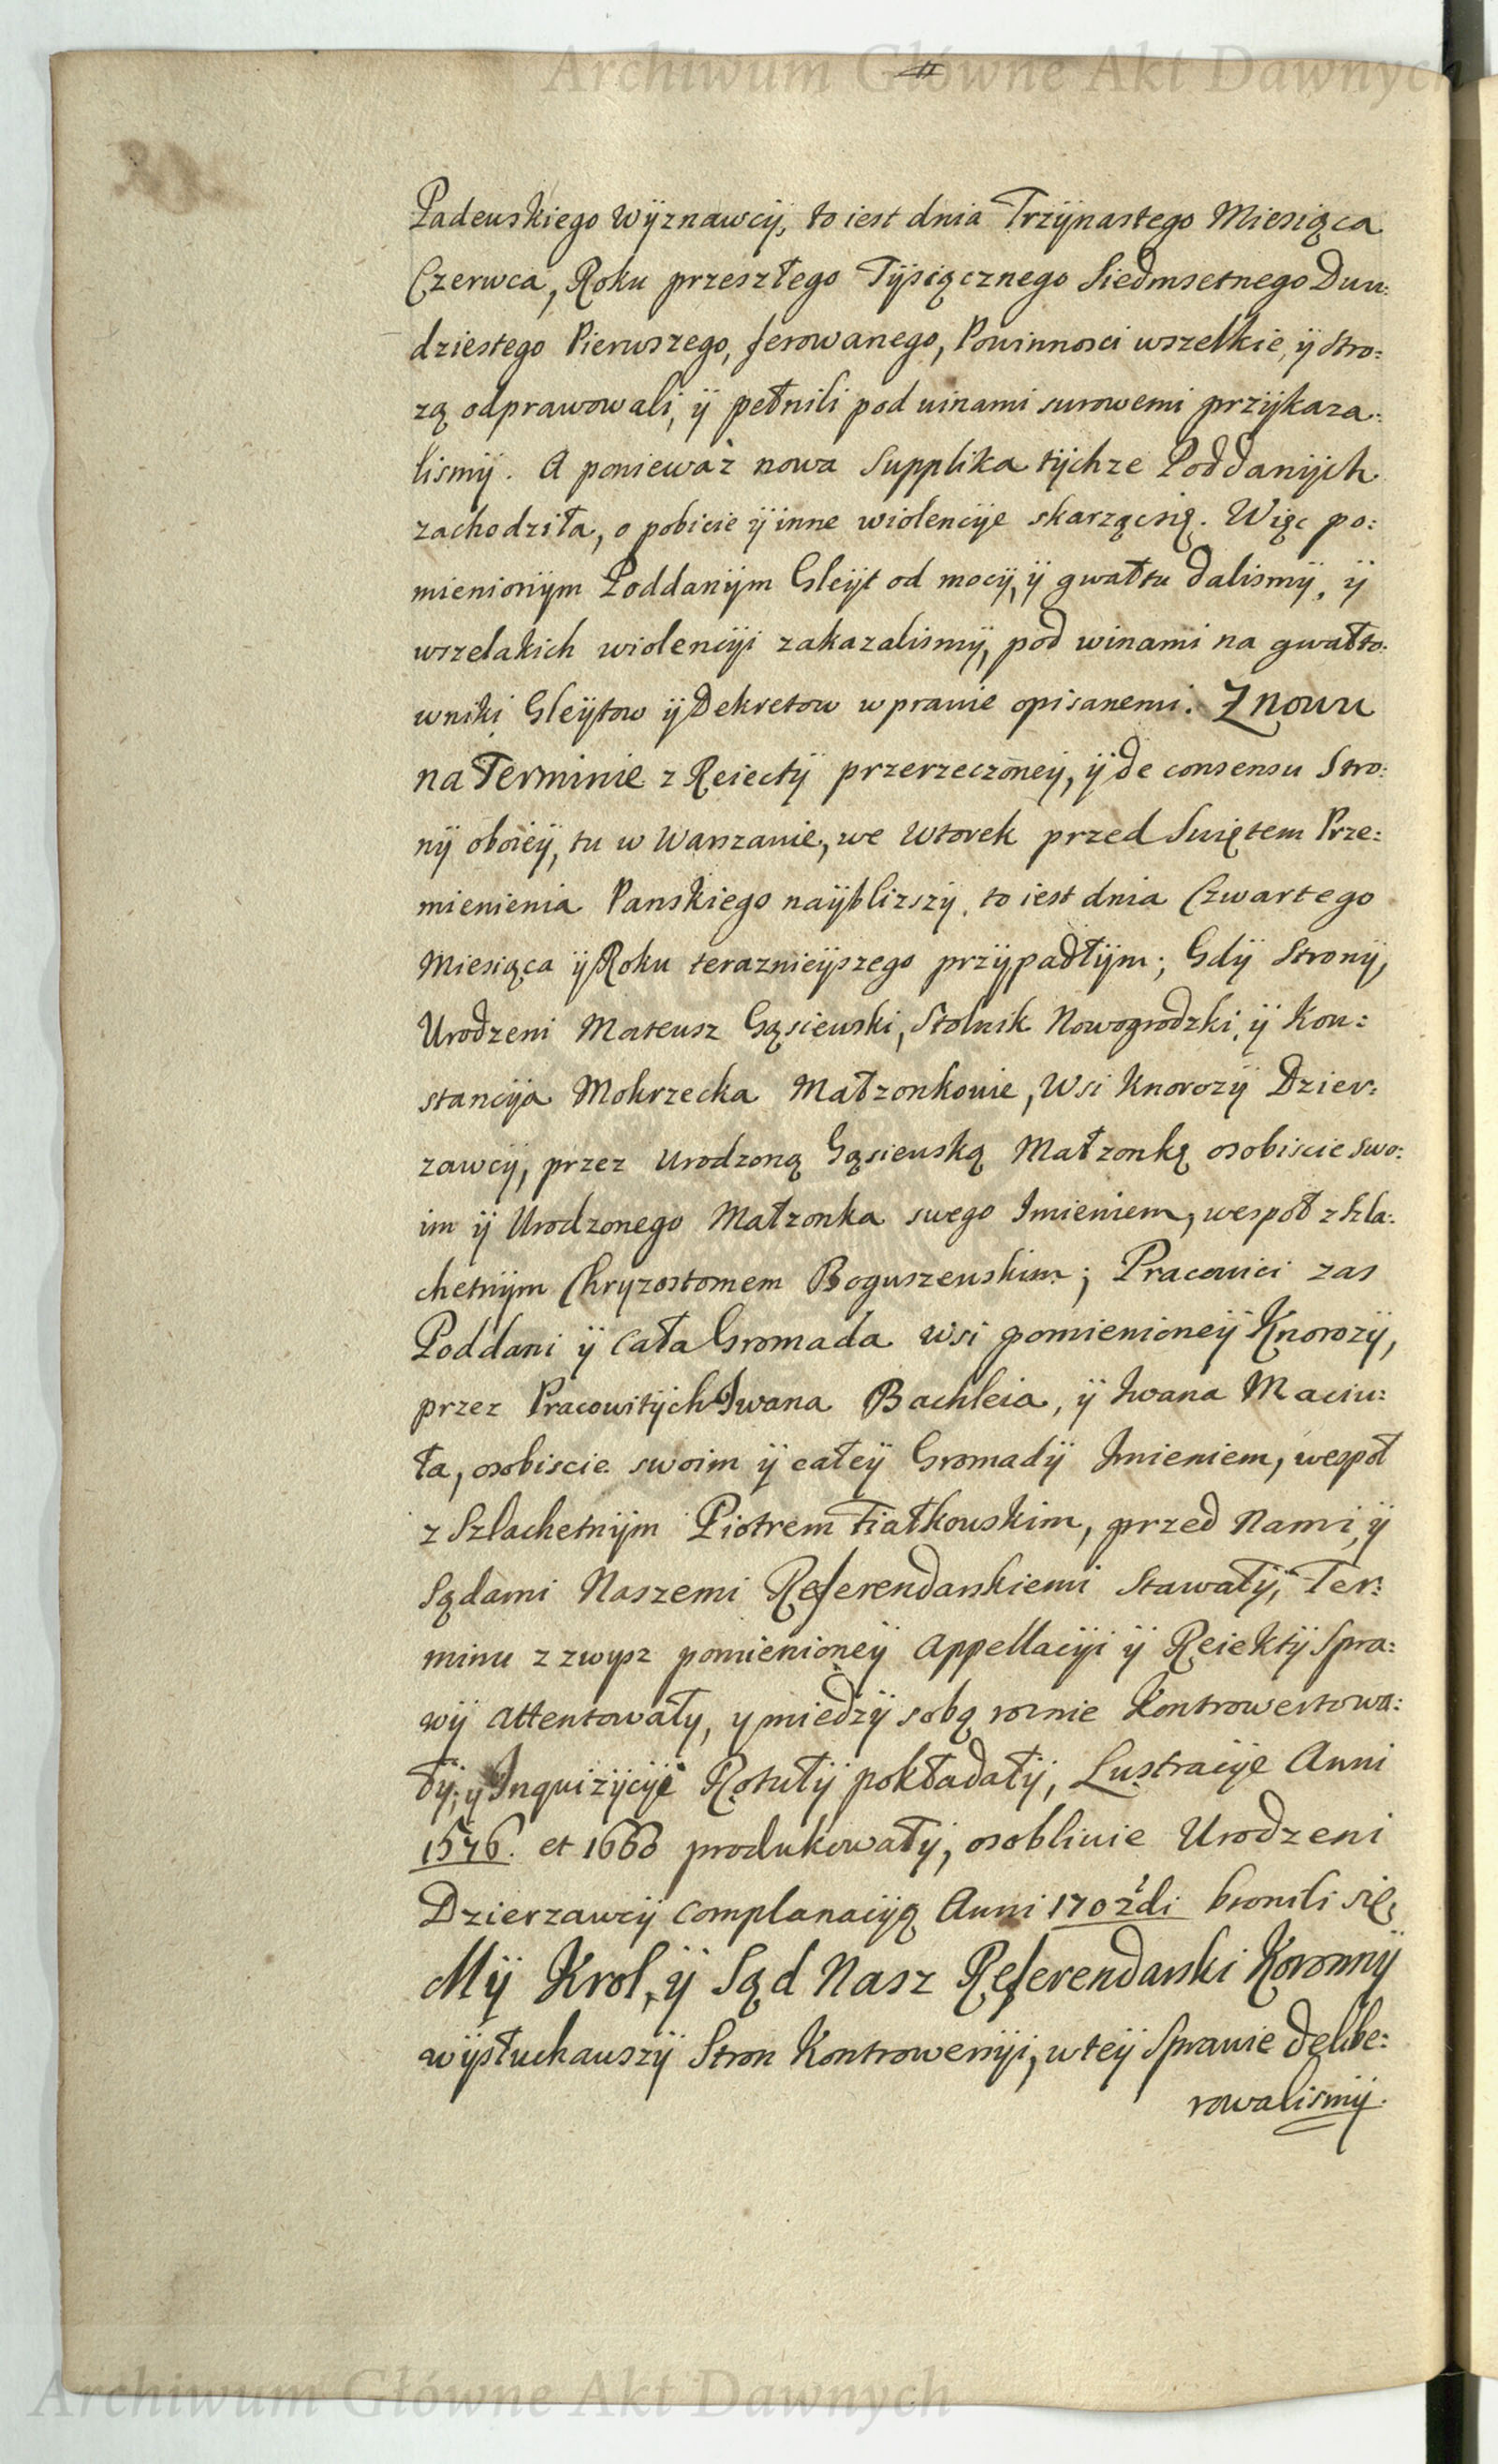 Archiwum Główne Akt Dawnych
Padeuskiego Wÿznawcÿ, to iest dnia Trzÿnastego Miesiąca
Czerwca, Roku przeszłego Tÿsiącznego Siedmsetnego Dwu:
dziestego Pierwszego, ferowanego, Powinnosci wszelkie, ÿ stro:
zą odprawowali, ÿ pełnili pod winami surowemi przÿkaza:
lismÿ. A ponieważ nowa Supplika tÿchze Poddanÿch
zachodziła, o pobicie ÿ inne wiolencÿe skarzącsię. Więc po:
mienionÿm Poddanÿm Gleÿt od mocÿ, ÿ gwałtu dalismÿ, ÿ
wszelakich wiolencÿi zakazalismÿ, pod winami na gwałto:
wniki Gleÿtow ÿ Dekretow w prawie opisanemi. Znowu
na Terminie z Reiectÿ przerzeczoneÿ, ÿ de consensu Stro:
nÿ oboieÿ, tu w Warszawie, we Wtorek przed Swiętem Prze:
mienienia Panskiego naÿblizszÿ, to iest dnia Czwartego
Miesiąca ÿ Roku teraznieÿszego przÿpadłÿm; Gdÿ Stronÿ,
Urodzeni Mateusz Gąsiewski, Stolnik Nowogrodzki, ÿ Kon:
stancÿa Mokrzecka Małzonkowie, Wsi Knorozÿ Dzier:
zawcÿ, przez Urodzoną Gąsiewską Małzonkę osobiscie swo:
im ÿ Urodzonego Małzonka swego Imieniem, wespoł z Szla:
chetnÿm Chryzostomem Boguszewskim; Pracowici zas
Poddani ÿ cała Gromada wsi pomienioneÿ Knorozÿ,
przez Pracowitÿch Iwana Bachleia, ÿ Iwana Maciu:
ła, osobiscie swoim ÿ całeÿ Gromadÿ Imieniem, wespoł
z Szlachetnÿm Piotrem Fiałkowskim, przed Nami, ÿ
Sądami Naszemi Referendarskiemi stawałÿ, Ter:
minu z zwysz pomienioneÿ Appellacÿi ÿ Reiektÿ Spra:
wÿ attentowały, y miedzÿ sobą roznie kontrowertowa:
łÿ, ÿ Inquizÿcÿe Rotułÿ pokładałÿ, Lustracÿe Anni
1576. et 1660 produkowałÿ, osobliwie Urodzeni
Dzierzawcÿ complanacÿą Anni 1702di bronili się,
Mÿ Krol, ÿ Sąd Nasz Referendarski Koronnÿ
wÿsłuchawszÿ Stron Kontrowersÿi, w teÿ Sprawie delibe:
rowalismÿ.
Archiwum Główne Akt Dawnych